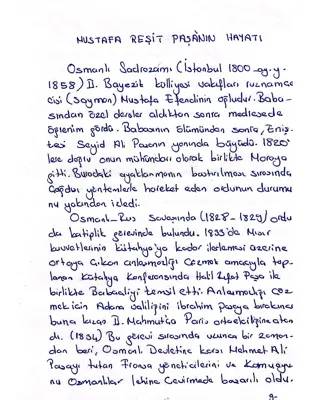 MUSTAFA REŞİT PAŞANIN HAYATI
Osmanlı Sadrazamı (İstanbul 1800 - ay.y.
1858) II. Bayezit külliyesi vakıfları ruznamce
cisi (sayman) Mustafa Efendinin oğludur. Baba-
sından özel dersler aldıktan sonra medresede
öğrenim gördü. Babasının ölümünden sonra, Eniş-
tesi Seyid Ali Paşanın yanında büyüdü. 1820'
lere doğru onun mühürdarı olarak birlikte Moraya
gitti. Buradaki ayaklanmanın bastırılması sırasında
Çağdışı yöntemlerle hareket eden ordunun durumu
nu yakından izledi.
Osmanlı-Rus Savaşında (1828-1829) ordu
da katiplik görevinde bulundu. 1833'de Mısır
kuvvetlerinin Kütahya'ya kadar ilerlemesi üzerine
ortaya çıkan anlaşmazlığı çözmek amacıyla top-
lanan Kütahya Konferansında Halil Rıfat Paşa ile
birlikte Babıaliyi temsil etti. Anlaşmazlığı çöz
mek için Adana valiliğini İbrahim paşaya bırakınca
buna kızan II. Mahmut'ca Paris ortaelçiliğine atan
dı. (1834) Bu görevi sırasında uzunca bir zaman-
dan beri, Osmanlı Devletine karşı Mehmet Ali
Paşayı tutan Fransa yöneticilerini ve Kamuoyu
nu Osmanlılar lehine Çevirmede başarılı oldu.